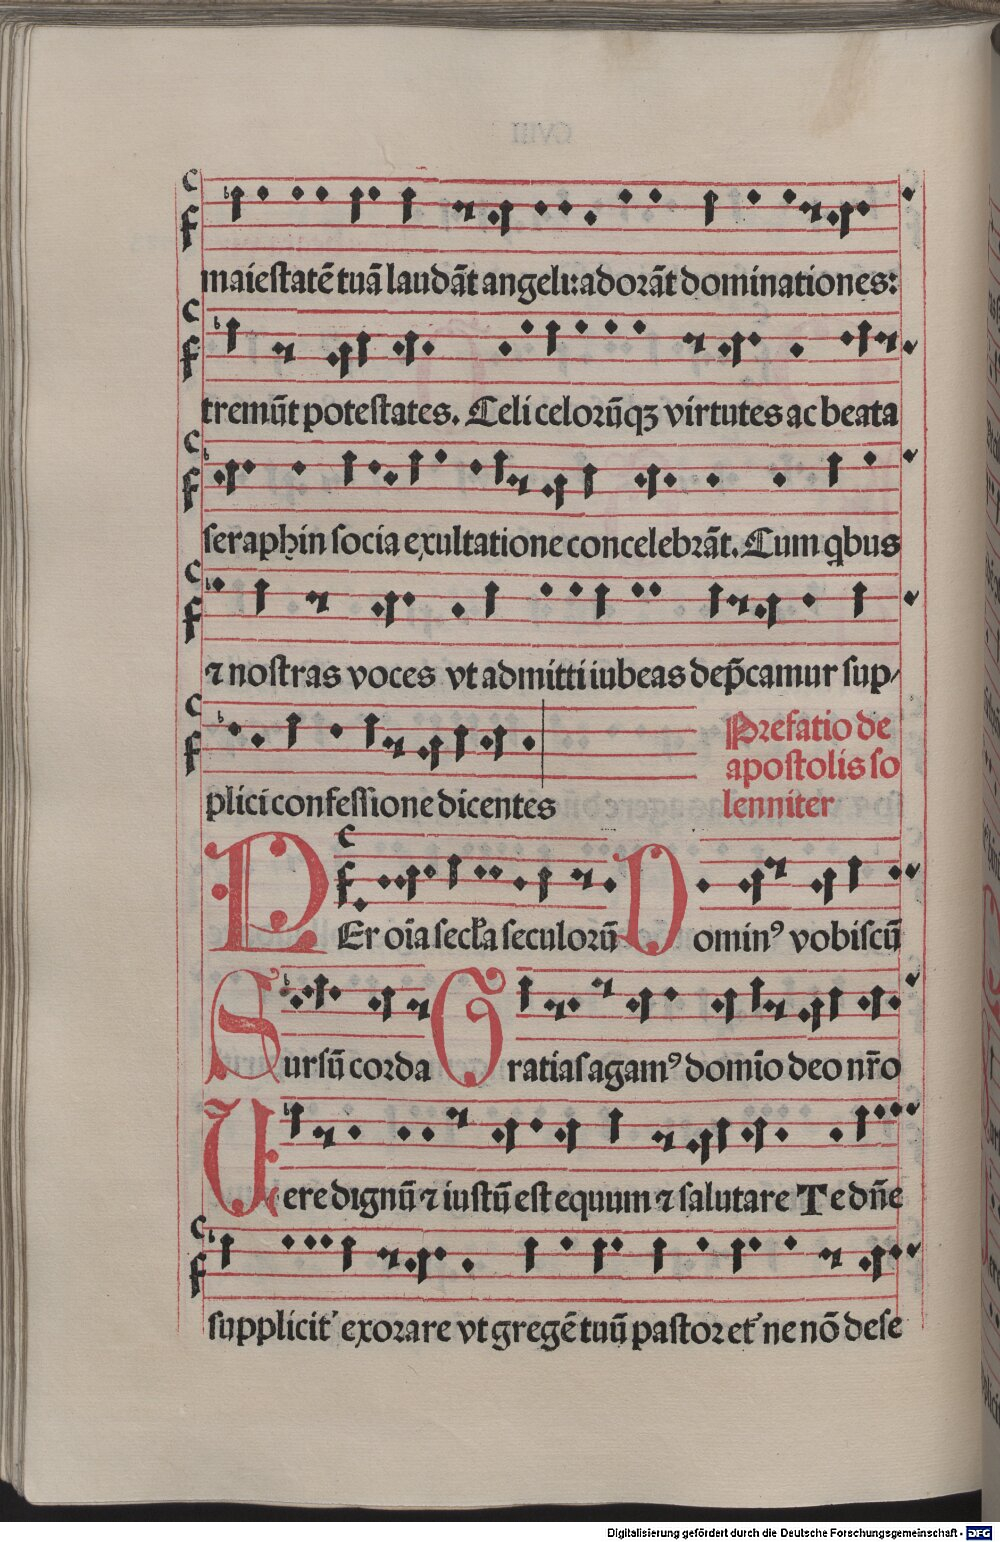 maiestatē tuā laudāt angeli: adorāt dominationes:
tremūt potestates. Celi celorūqꝫ virtutes ac beata
seraphin socia exultatione concelebrāt. Cum qbus
⁊ nostras voces vt admitti iubeas dep̄camur sup-
Prefatio de
apostolis so
lenniter
plici confessione dicentes
PEr oīa secła seculorū Dominꝰ vobiscū
Sursū corda Gratias agamꝰ domīo deo nr̄o
Uere dignū ⁊ iustū est equum ⁊ salutare Te dn̄e
supplicit' exorare vt gregē tuū pastor et' ne nō dese
Digitalisierung gefördert durch die Deutsche Forschungsgemeinschaft - DFG